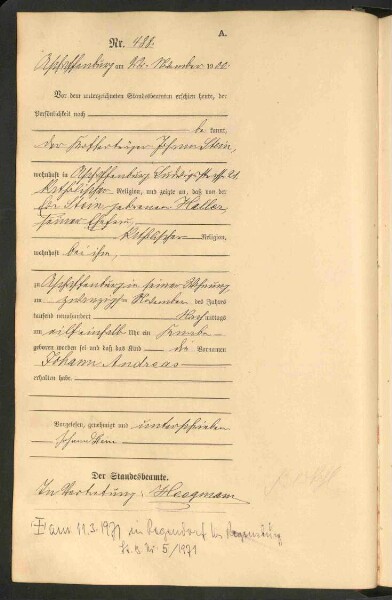 A.
Nr. 488.
Aschaffenburg am 22. November 1900
Vor dem unterzeichneten Standesbeamten erschien heute, der
Persönlichkeit nach
be kannt,
der Johann Stein,
wohnhaft in Aschaffenburg
katholischer Religion, und zeigte an, daß von der
Stein geborenen Haller,
seiner Ehefrau,
katholischer Religion,
wohnhaft bei ihm,
zu Aschaffenburg in seiner Wohnung
am November des Jahres
tausend neunhundert Nachmittags
um eilfeinhalb Uhr ein Knabe
geboren worden sei und daß das Kind die Vornamen
Johann Andreas
erhalten habe.
Vorgelesen, genehmigt und unterschrieben
Johann Stein
Der Standesbeamte.
In Vertretung: Hoegmann
am 11.3.1971 in Regendorf Regensburg
Nr. 5/1971